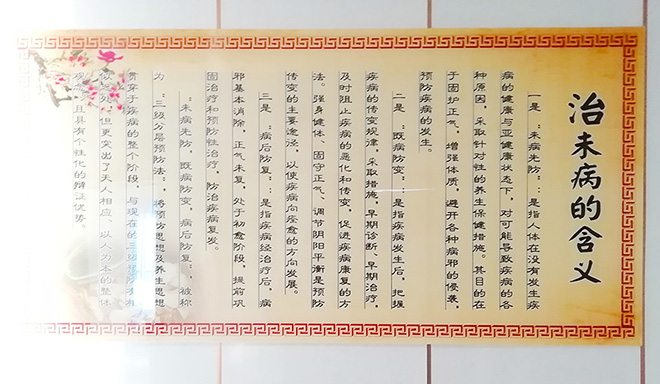 治未病的含义
一是：“未病先防”：是指人体在没有发生疾
病的健康与亚健康状态下，对可能导致疾病的各
种原因，采取针对性的养生保健措施。其目的在
于固护正气，增强体质，避开各种病邪的侵袭，
预防疾病的发生。
二是：“既病防变”：是指疾病发生后，把握
疾病的传变规律，采取措施，早期诊断、早期治疗，
及时阻止疾病的恶化和传变，促进疾病康复的方
法。强身健体、固守正气、调节阴阳平衡是预防
传变的主要途径，以使疾病向痊愈的方向发展。
三是：“病后防复”：是指疾病经治疗后，病
邪基本消除，正气未复，处于初愈阶段，提前巩
固治疗和预防性治疗，防治疾病复发。
“未病先防，既病防变，病后防复”，被称
为“三级分层预防法”，将预防思想及养生思想
贯穿于疾病的整个阶段，与现在的三级预防有相
似之处，但更突出了天人相应、以人为本的整体
观念，且具有个性化的辩证优势。